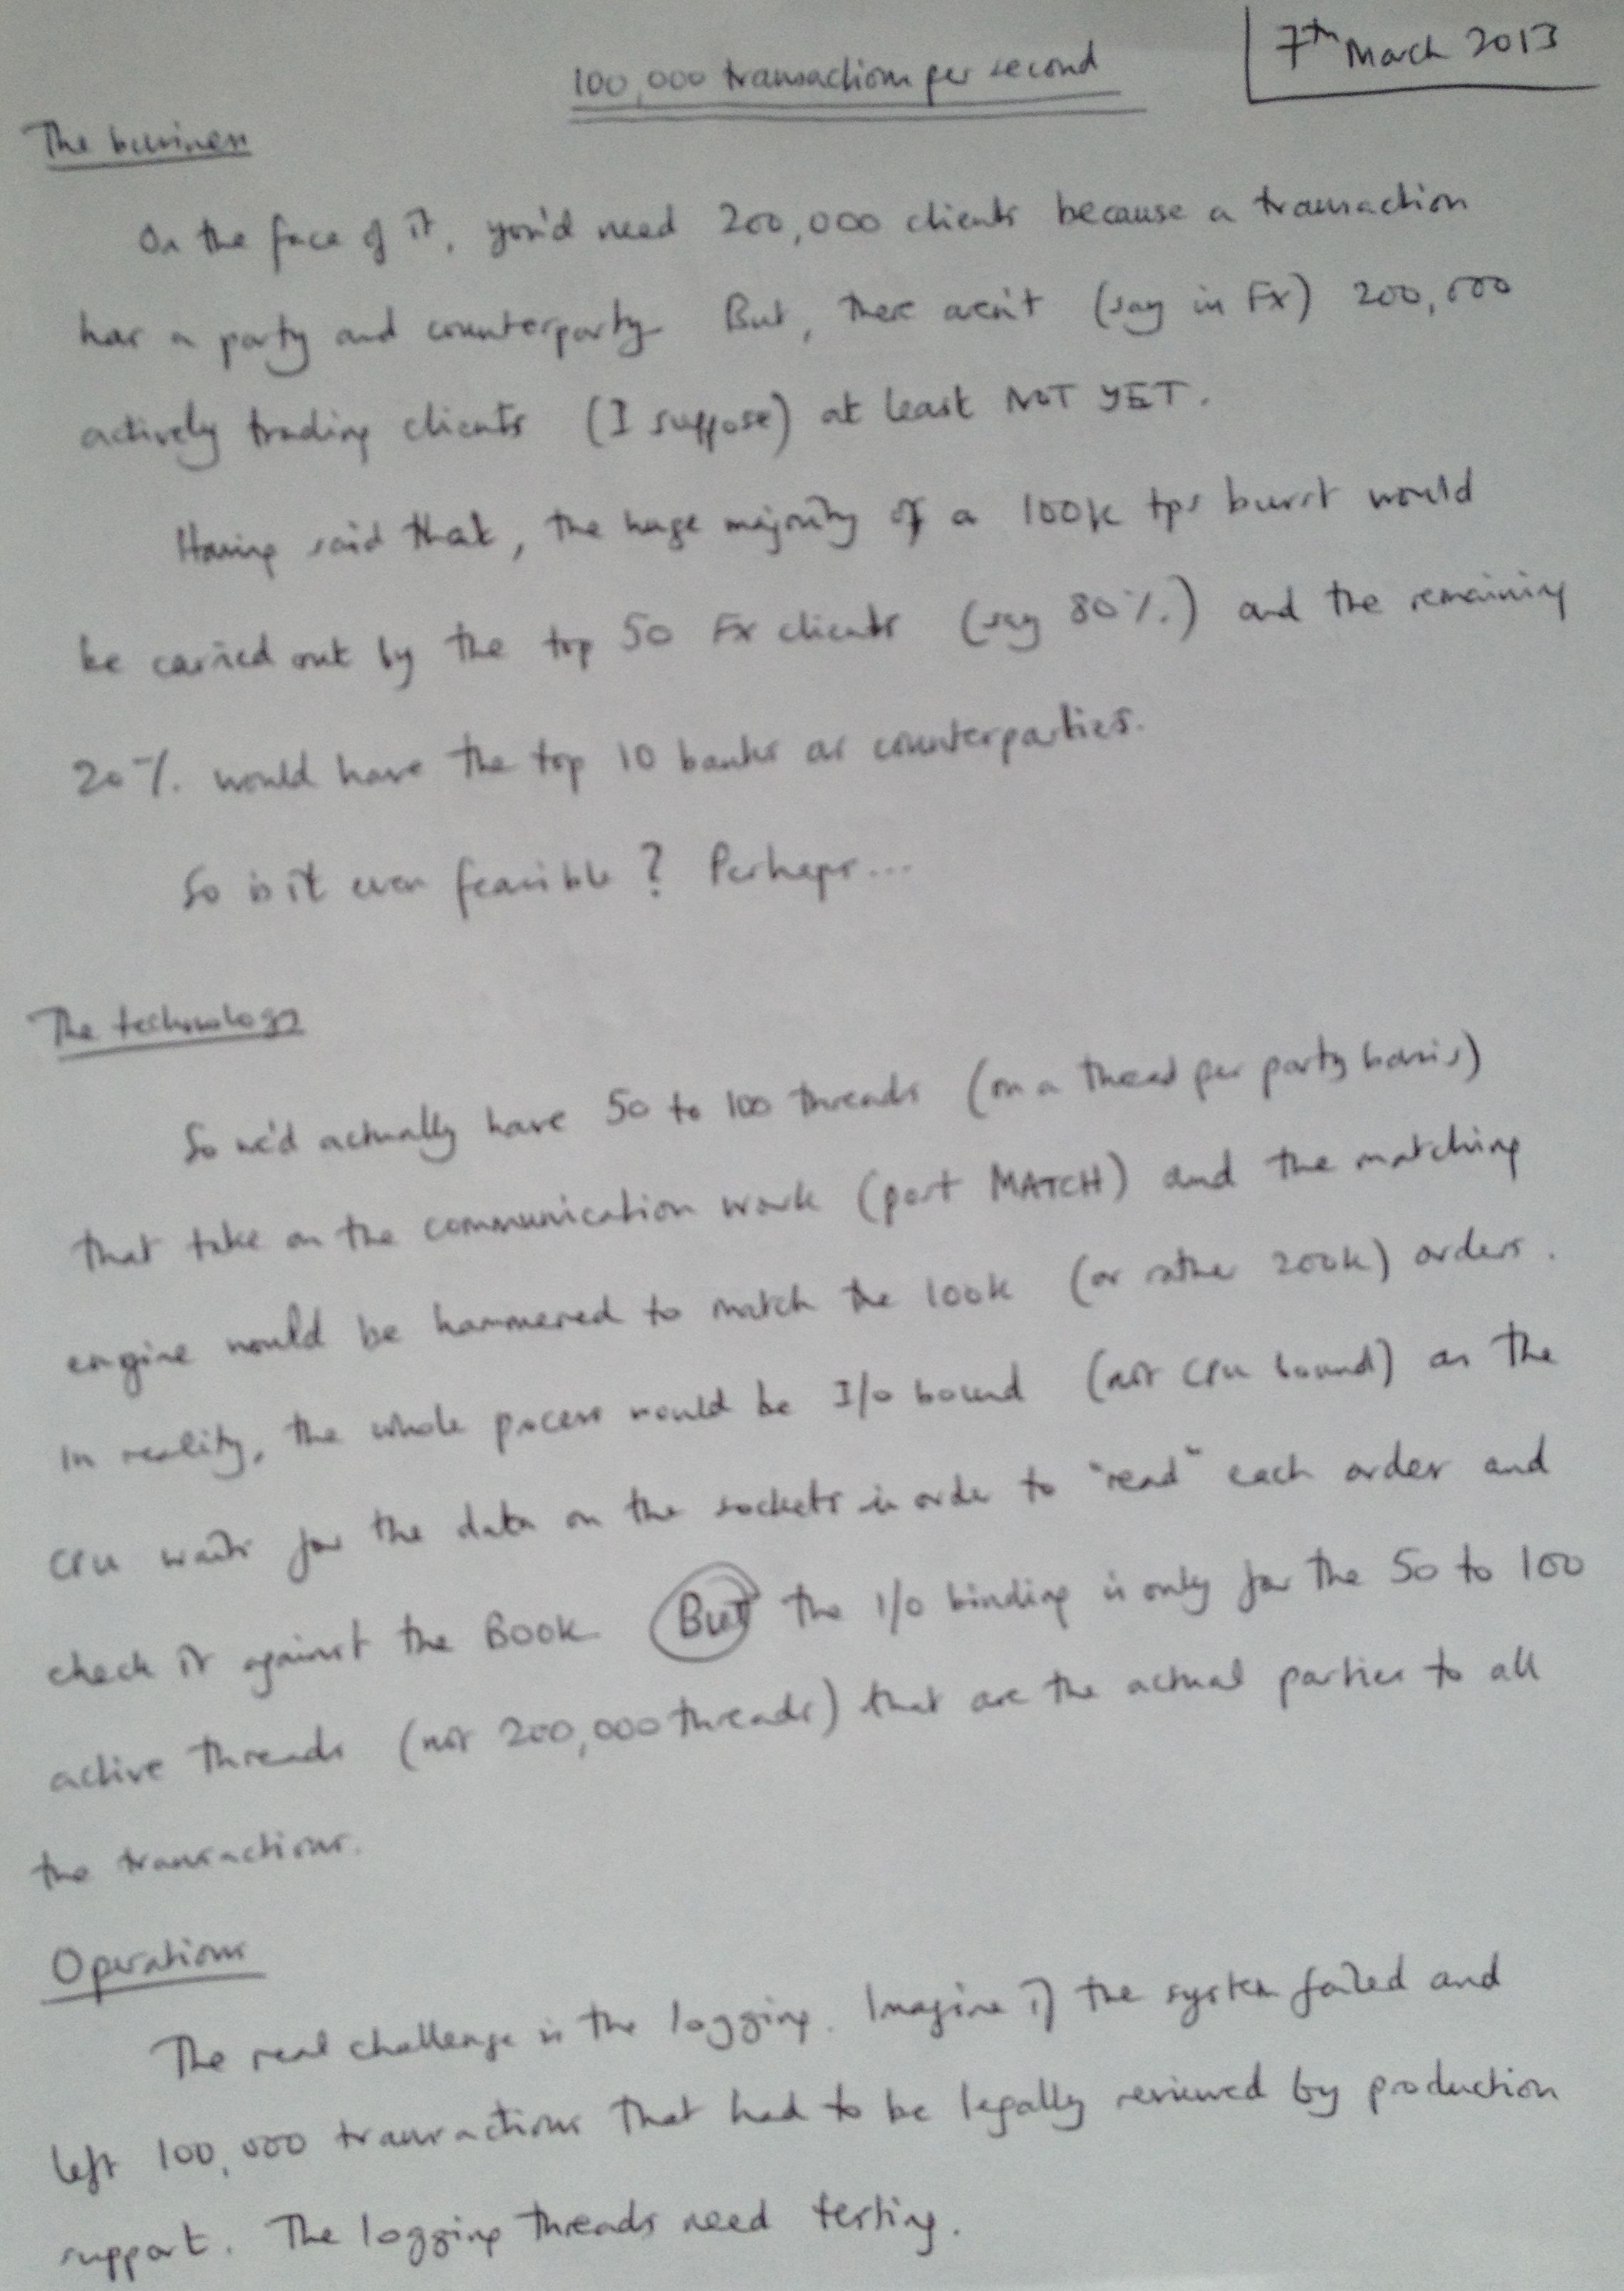 7th March 2013
100,000 transactions per second
The business
On the face of it, you'd need 200,000 clients because a transaction
has a party and counterparty. But, there aren't (say in FX) 200,000
actively trading clients (I suppose) at least NOT YET.
Having said that, the huge majority of a 100k tps burst would
be carried out by the top 50 FX clients (say 80%) and the remaining
20% would have the top 10 banks as counterparties.
So is it even feasible? Perhaps...
The technology
So we'd actually have 50 to 100 threads (on a thread per party basis)
that take on the communication work (post MATCH) and the matching
engine would be hammered to match the 100k (or rather 200k) orders.
In reality, the whole process would be I/O bound (not CPU bound) as the
CPU waits for the data on the sockets in order to "read" each order and
check it against the BOOK. But the I/O binding is only for the 50 to 100
active threads (not 200,000 threads) that are the actual parties to all
the transactions.
Operations
The real challenge is the logging. Imagine if the system failed and
left 100,000 transactions that had to be legally reviewed by production
support. The logging threads need testing.